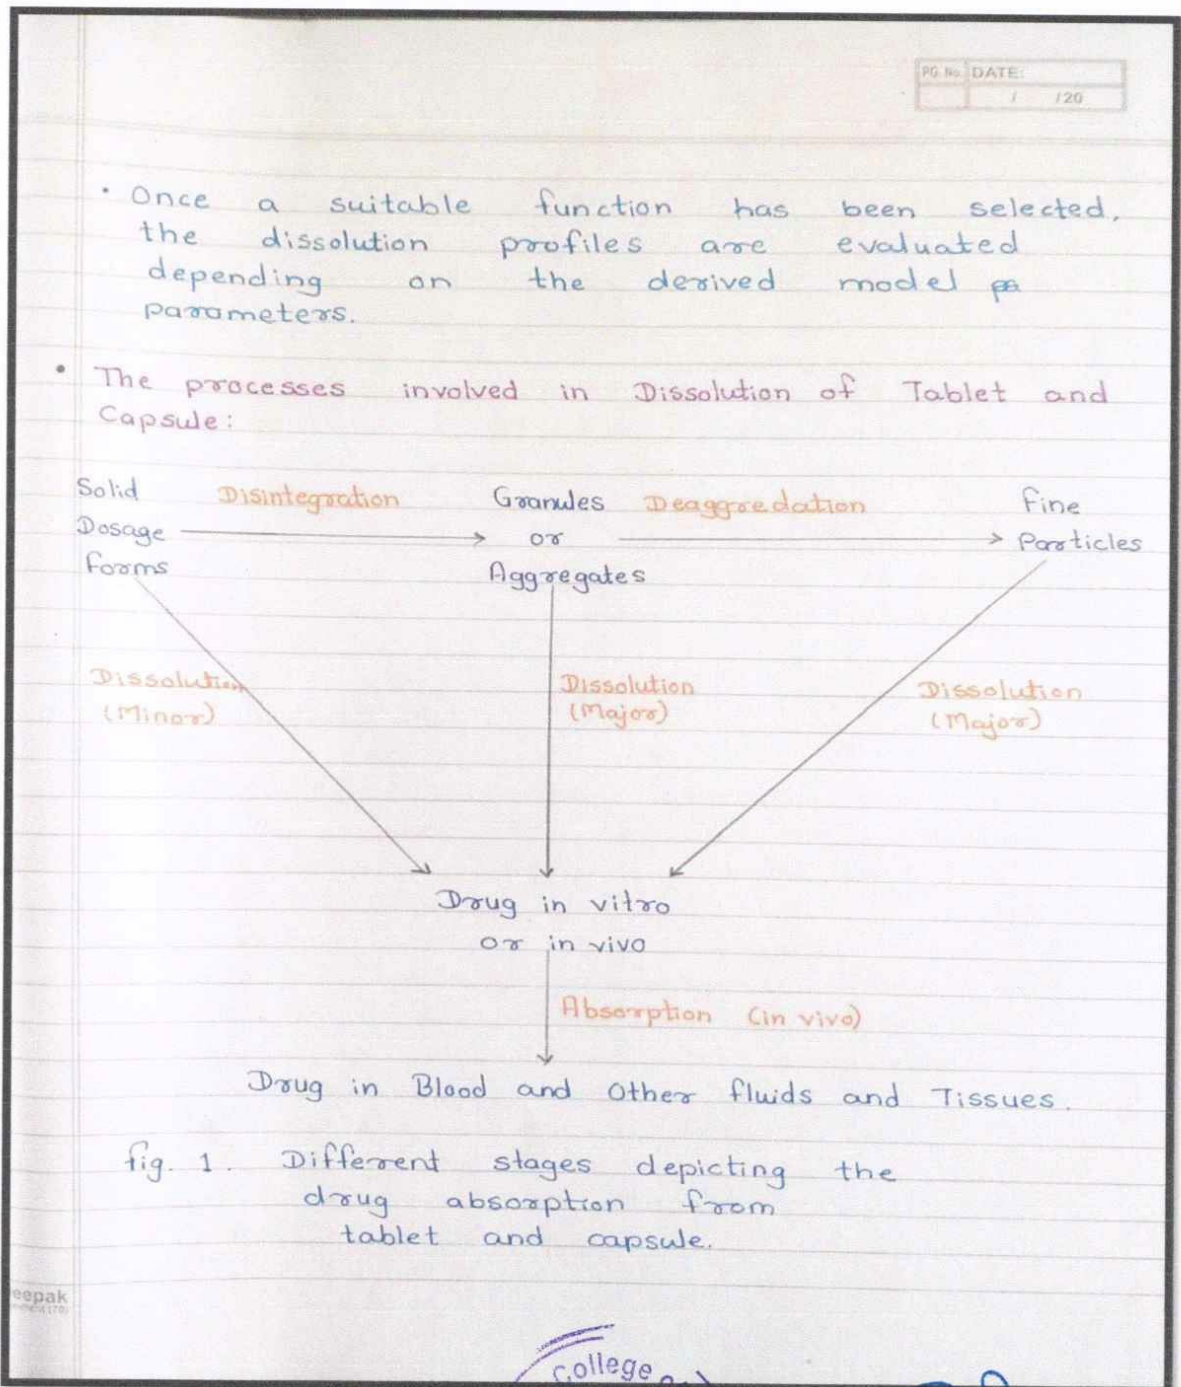 PG No. DATE:
/ /20
• Once a suitable function has been selected,
the dissolution profiles are evaluated
depending on the derived model pa
parameters.
• The processes involved in Dissolution of Tablet and
Capsule:
Solid Disintegration Granules Deaggredation Fine
Dosage or Particles
Forms Aggregates
Dissolution Dissolution Dissolution
(Minor) (Major) (Major)
Drug in vitro
or in vivo
Absorption (in vivo)
Drug in Blood and Other fluids and Tissues.
fig. 1. Different stages depicting the
drug absorption from
tablet and capsule.
eepak
College